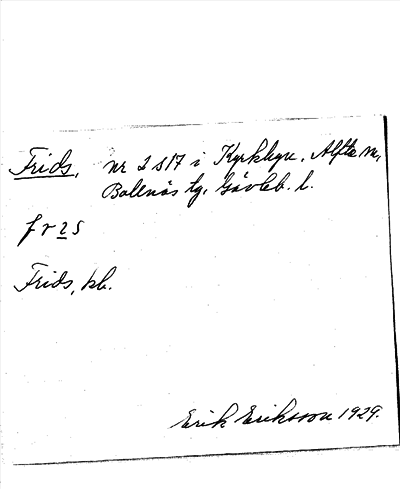 Frids, nr 2 s17 i Kyrkbyn, Alfta sn,
Bollnäs tg, Gävleb. l.
frɪs
Frids, kb.
Erik Eriksson 1929.